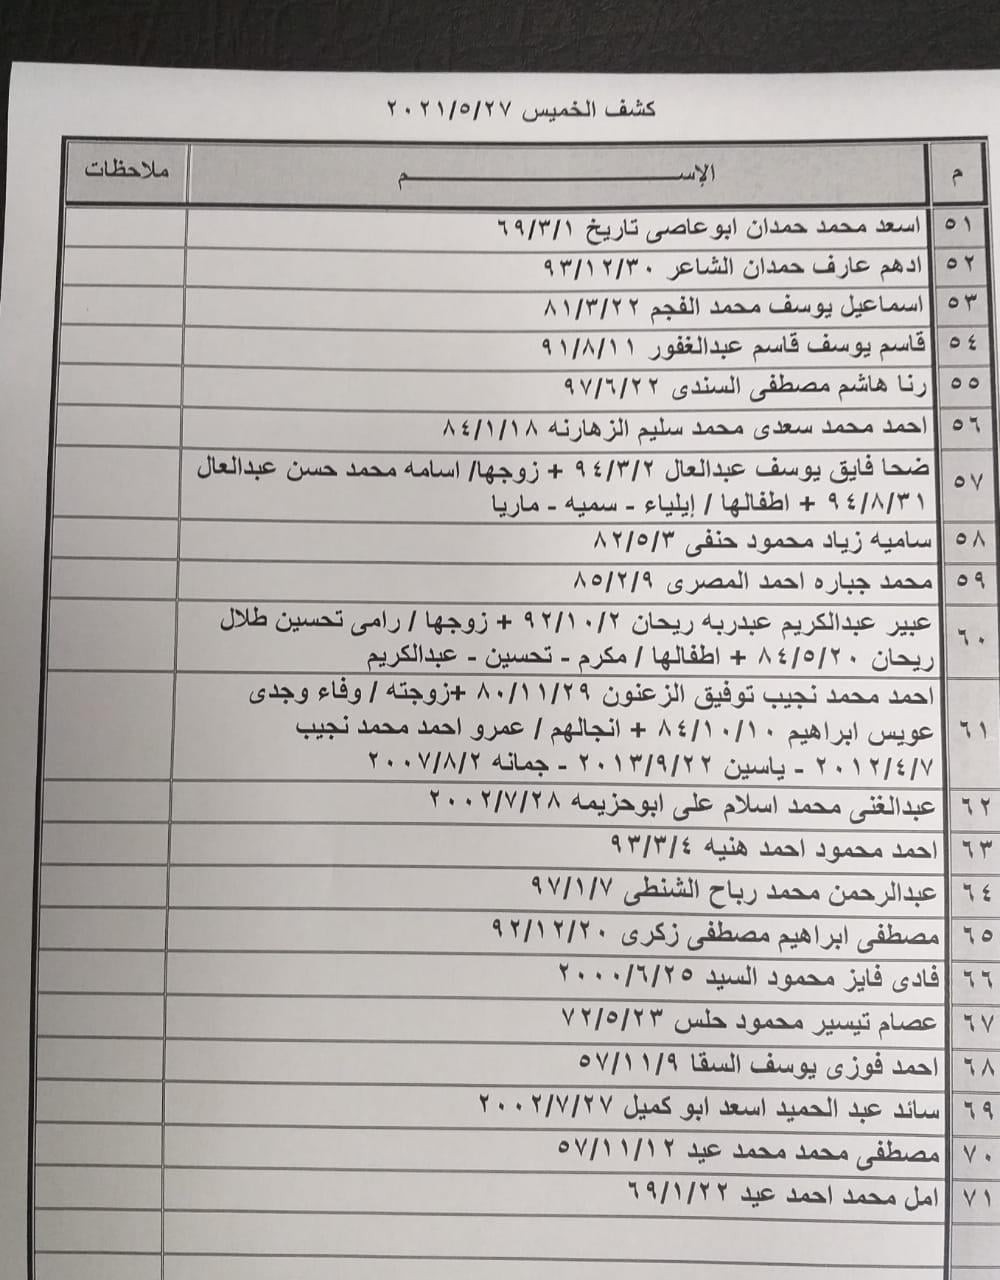 كشف الخميس ٢٠٢١/٥/٢٧
م الإســـــــــــم ملاحظات
٥١ اسعد محمد حمدان ابوعاصى تاريخ ٦٩/٣/١
٥٢ ادهم عارف حمدان الشاعر ٩٣/١٢/٣٠
٥٣ اسماعيل يوسف محمد الفجم ٨١/٣/٢٢
٥٤ قاسم يوسف قاسم عبدالغفور ٩١/٨/١١
٥٥ رنا هاشم مصطفى السندى ٩٧/٦/٢٢
٥٦ احمد محمد سعدى محمد سليم الزهارنه ٨٤/١/١٨
٥٧ ضحا فايق يوسف عبدالعال ٩٤/٣/٢ + زوجها/ اسامه محمد حسن عبدالعال
٩٤/٨/٣١ + اطفالها / إيلياء - سميه - ماريا
٥٨ ساميه زياد محمود حنفى ٨٢/٥/٣
٥٩ محمد جباره احمد المصرى ٨٥/٢/٩
٦٠ عبير عبدالكريم عبدربه ريحان ٩٢/١٠/٢ + زوجها / رامى تحسين طلال
ريحان ٨٤/٥/٢٠ + اطفالها / مكرم - تحسين - عبدالكريم
٦١ احمد محمد نجيب توفيق الزعنون ٨٠/١١/٢٩ +زوجته / وفاء وجدى
عويس ابراهيم ٨٤/١٠/١٠ + انجالهم / عمرو احمد محمد نجيب
٢٠١٢/٤/٧ - ياسين ٢٠١٣/٩/٢٢ - جمانه ٢٠٠٧/٨/٢
٦٢ عبدالغنى محمد اسلام على ابوحزيمه ٢٠٠٢/٧/٢٨
٦٣ احمد محمود احمد هنيه ٩٣/٣/٤
٦٤ عبدالرحمن محمد رباح الشنطى ٩٧/١/٧
٦٥ مصطفى ابراهيم مصطفى زكرى ٩٢/١٢/٢٠
٦٦ فادى فايز محمود السيد ٢٠٠٠/٦/٢٥
٦٧ عصام تيسير محمود حلس ٧٢/٥/٢٣
٦٨ احمد فوزى يوسف السقا ٥٧/١١/٩
٦٩ سائد عبد الحميد اسعد ابو كميل ٢٠٠٢/٧/٢٧
٧٠ مصطفى محمد محمد عيد ٥٧/١١/١٢
٧١ امل محمد احمد عيد ٦٩/١/٢٢